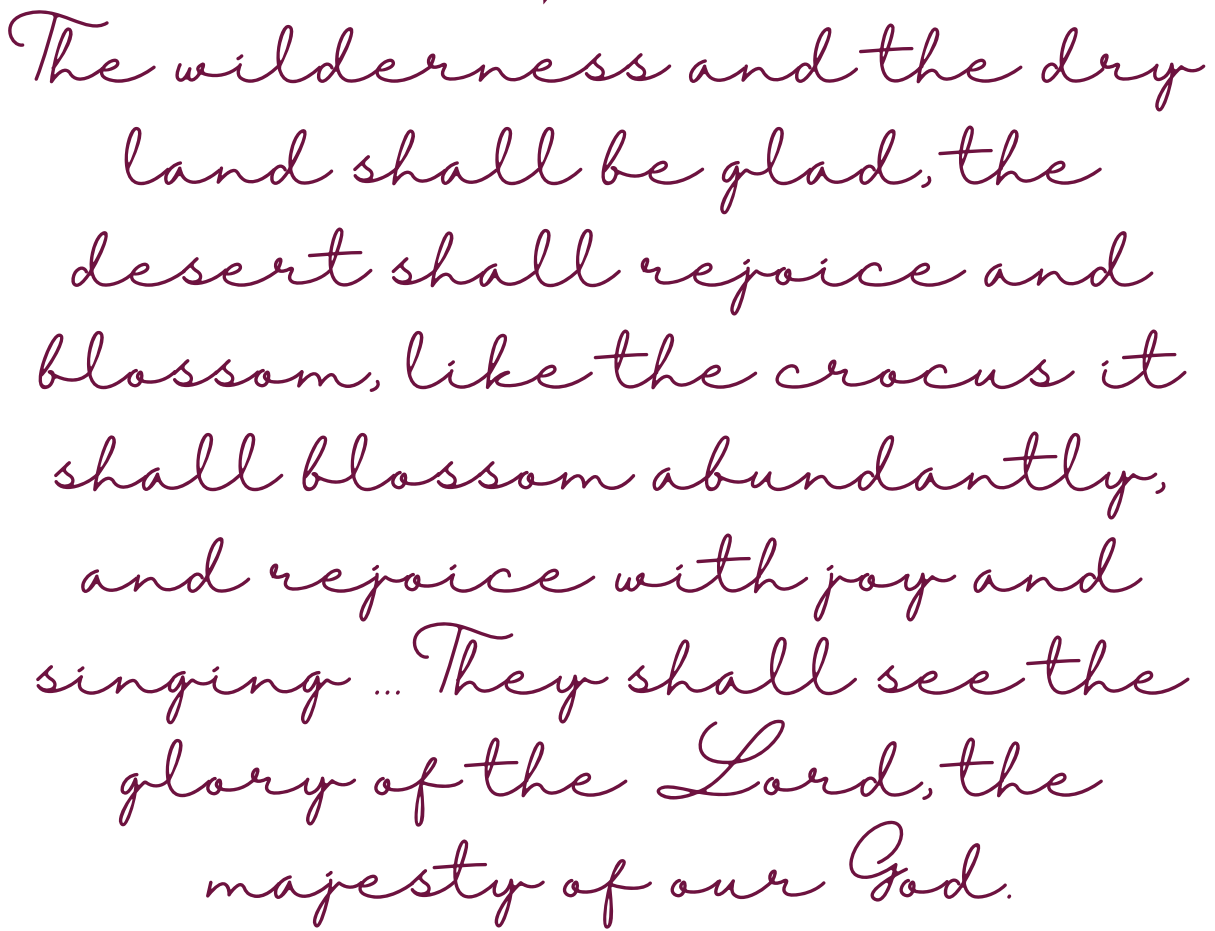 The wilderness and the dry
land shall be glad, the
desert shall rejoice and
blossom, like the crocus it
shall blossom abundantly,
and rejoice with joy and
singing ... They shall see the
glory of the Lord, the
majesty of our God.